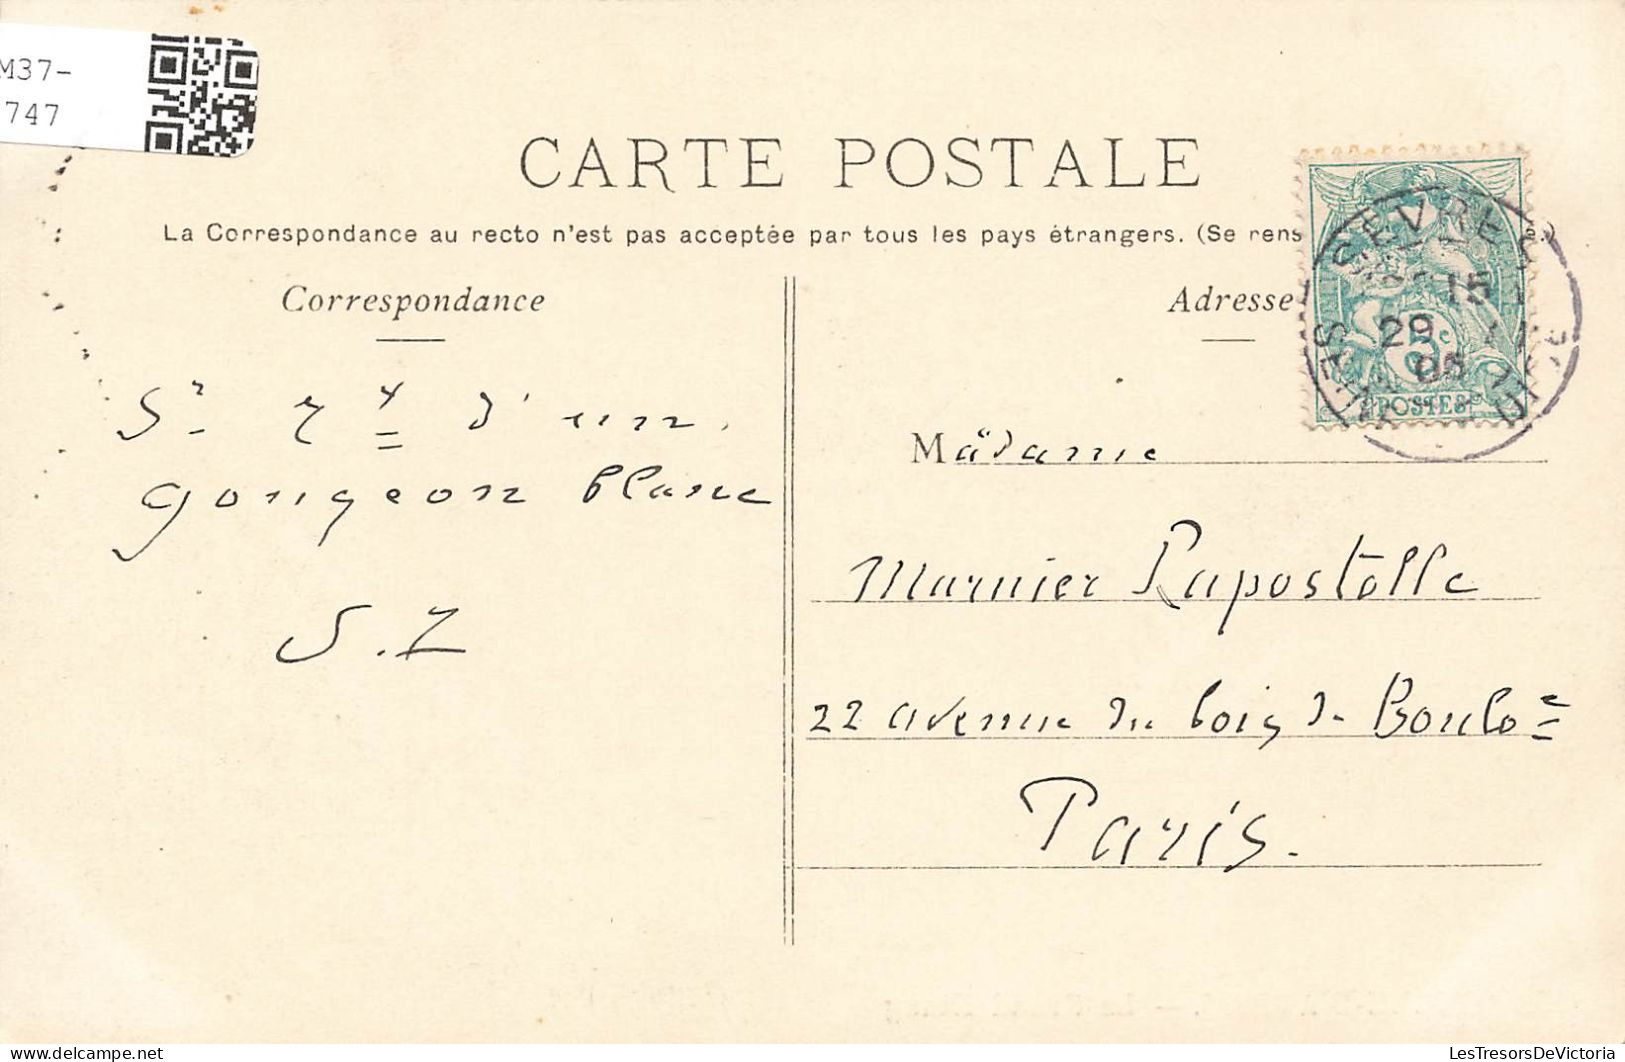 M37-
747
CARTE POSTALE
La Correspondance au recto n'est pas acceptée par tous les pays étrangers. (Se rens
Correspondance
Adresse
SEVRES
15
29
05
5c
POSTES
d'un
gougeon blanc
S. Z
Madame
Marnier Lapostolle
22 avenue du bois de Boulo=e
Paris.
LesTresorsDeVictoria